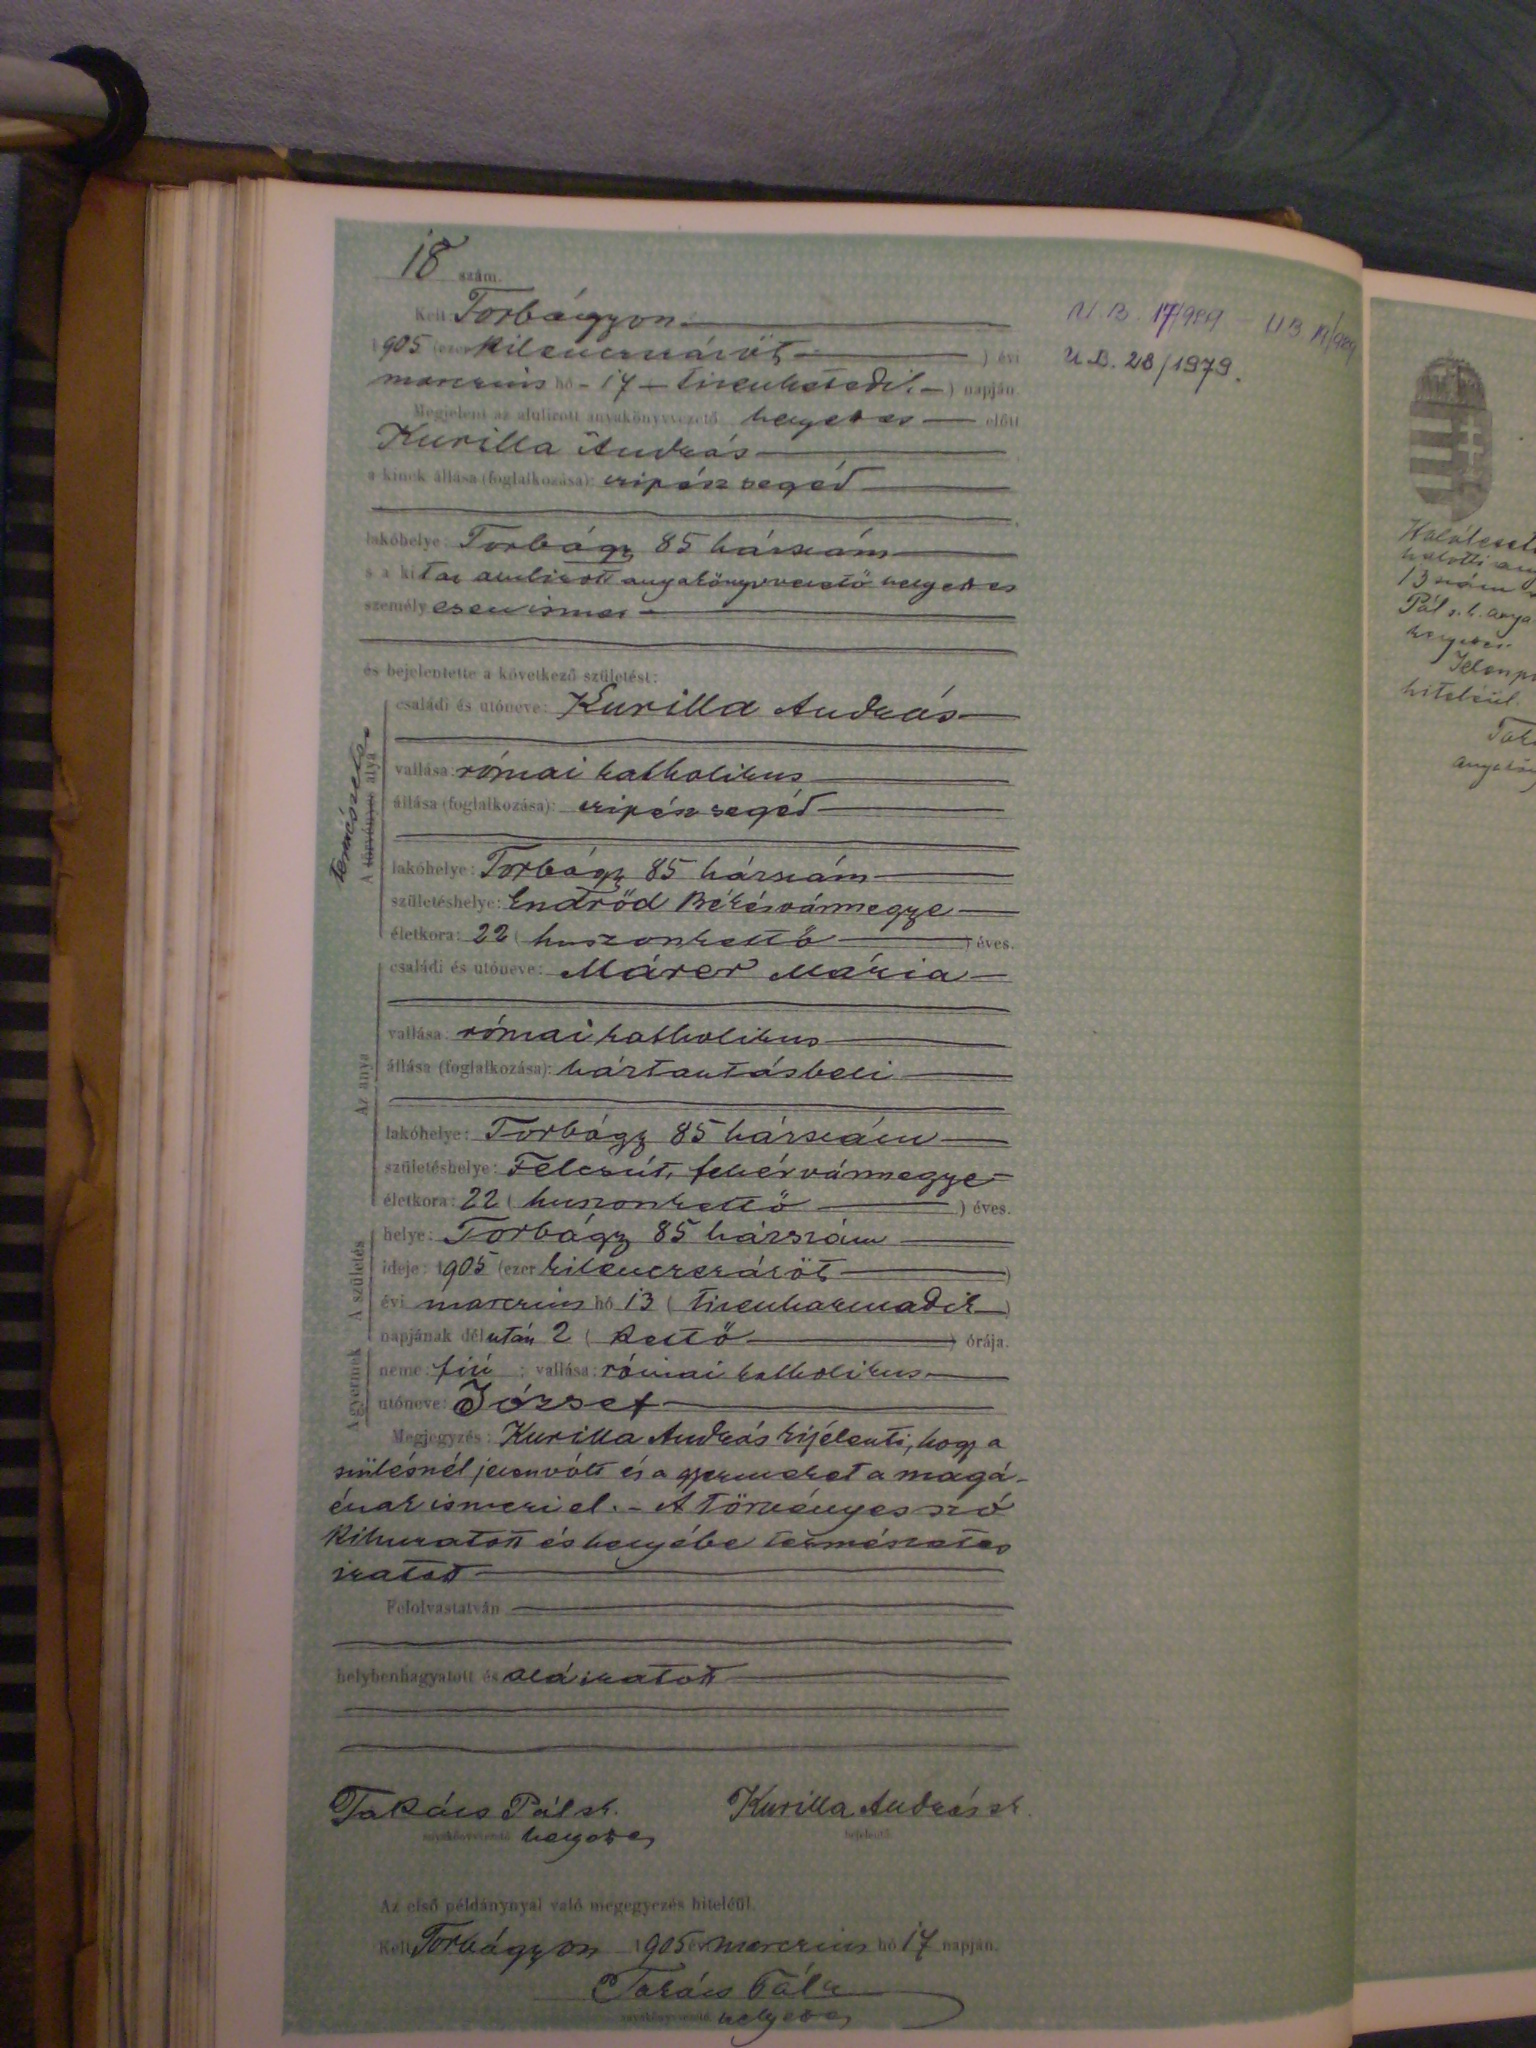 18 szám.
Kelt Torbágyon
1905 (ezer kilenczszázöt) évi
marczius hó 17 tizenhetedik) napján
Megjelent az alulirott anyakönyvvezető helyettes előtt
Kurilla András
a kinek állása (foglalkozása): czipész segéd
lakóhelye: Torbágy 85 házszám
s a kit az alulirott anyakönyvvezető helyettes
személyesen ismer
és bejelentette a következő születést:
természetes
A törvényes atya
családi és utóneve: Kurilla András
vallása: római katholikus
állása (foglalkozása): czipész segéd
lakóhelye: Torbágy 85 házszám
születéshelye: Endrőd Békésvármegye
életkora: 22 (huszonkettő) éves.
Az anya
családi és utóneve: Márer Mária
vallása: római katholikus
állása (foglalkozása): háztartásbeli
lakóhelye: Torbágy 85 házszám
születéshelye: Felcsút, fehérvármegye
életkora: 22 (huszonkettő) éves.
A születés
helye: Torbágy 85 házszám
ideje: 1905 (ezer kilenczszázöt)
évi marczius hó 13 (tizenharmadik)
napjának délután 2 (kettő) órája.
A gyermek
neme: fiú ; vallása: római katholikus
utóneve: József
Megjegyzés: Kurilla András kijelenti, hogy a
szülésnél jelenvólt és a gyermeket a magá-
énak ismeri el. - A törvényes szó
kihuzatott és helyébe természetes
iratott
Felolvastatván
helybenhagyatott és aláiratott
Takács Pál sk. Kurilla András sk.
anyakönyvvezető helyettes bejelentő
Az első példánynyal való megegyezés hiteléül.
Kelt Torbágyon 1905 évi marczius hó 17 napján.
Takács Pál
anyakönyvvezető helyettes
U.B. 28/1979.
Pál s. k. anya
helyettes
hiteléül.